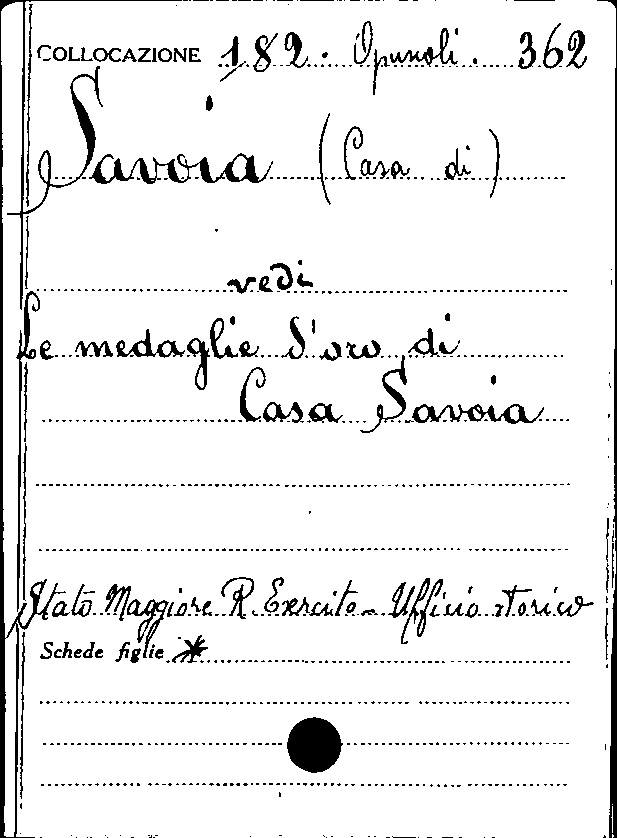 COLLOCAZIONE 182. Opuscoli. 362
Savoia (Casa di)
vedi
Le medaglie d'oro di
Casa Savoia
Stato Maggiore R. Esercito - Ufficio storico
Schede figlie *